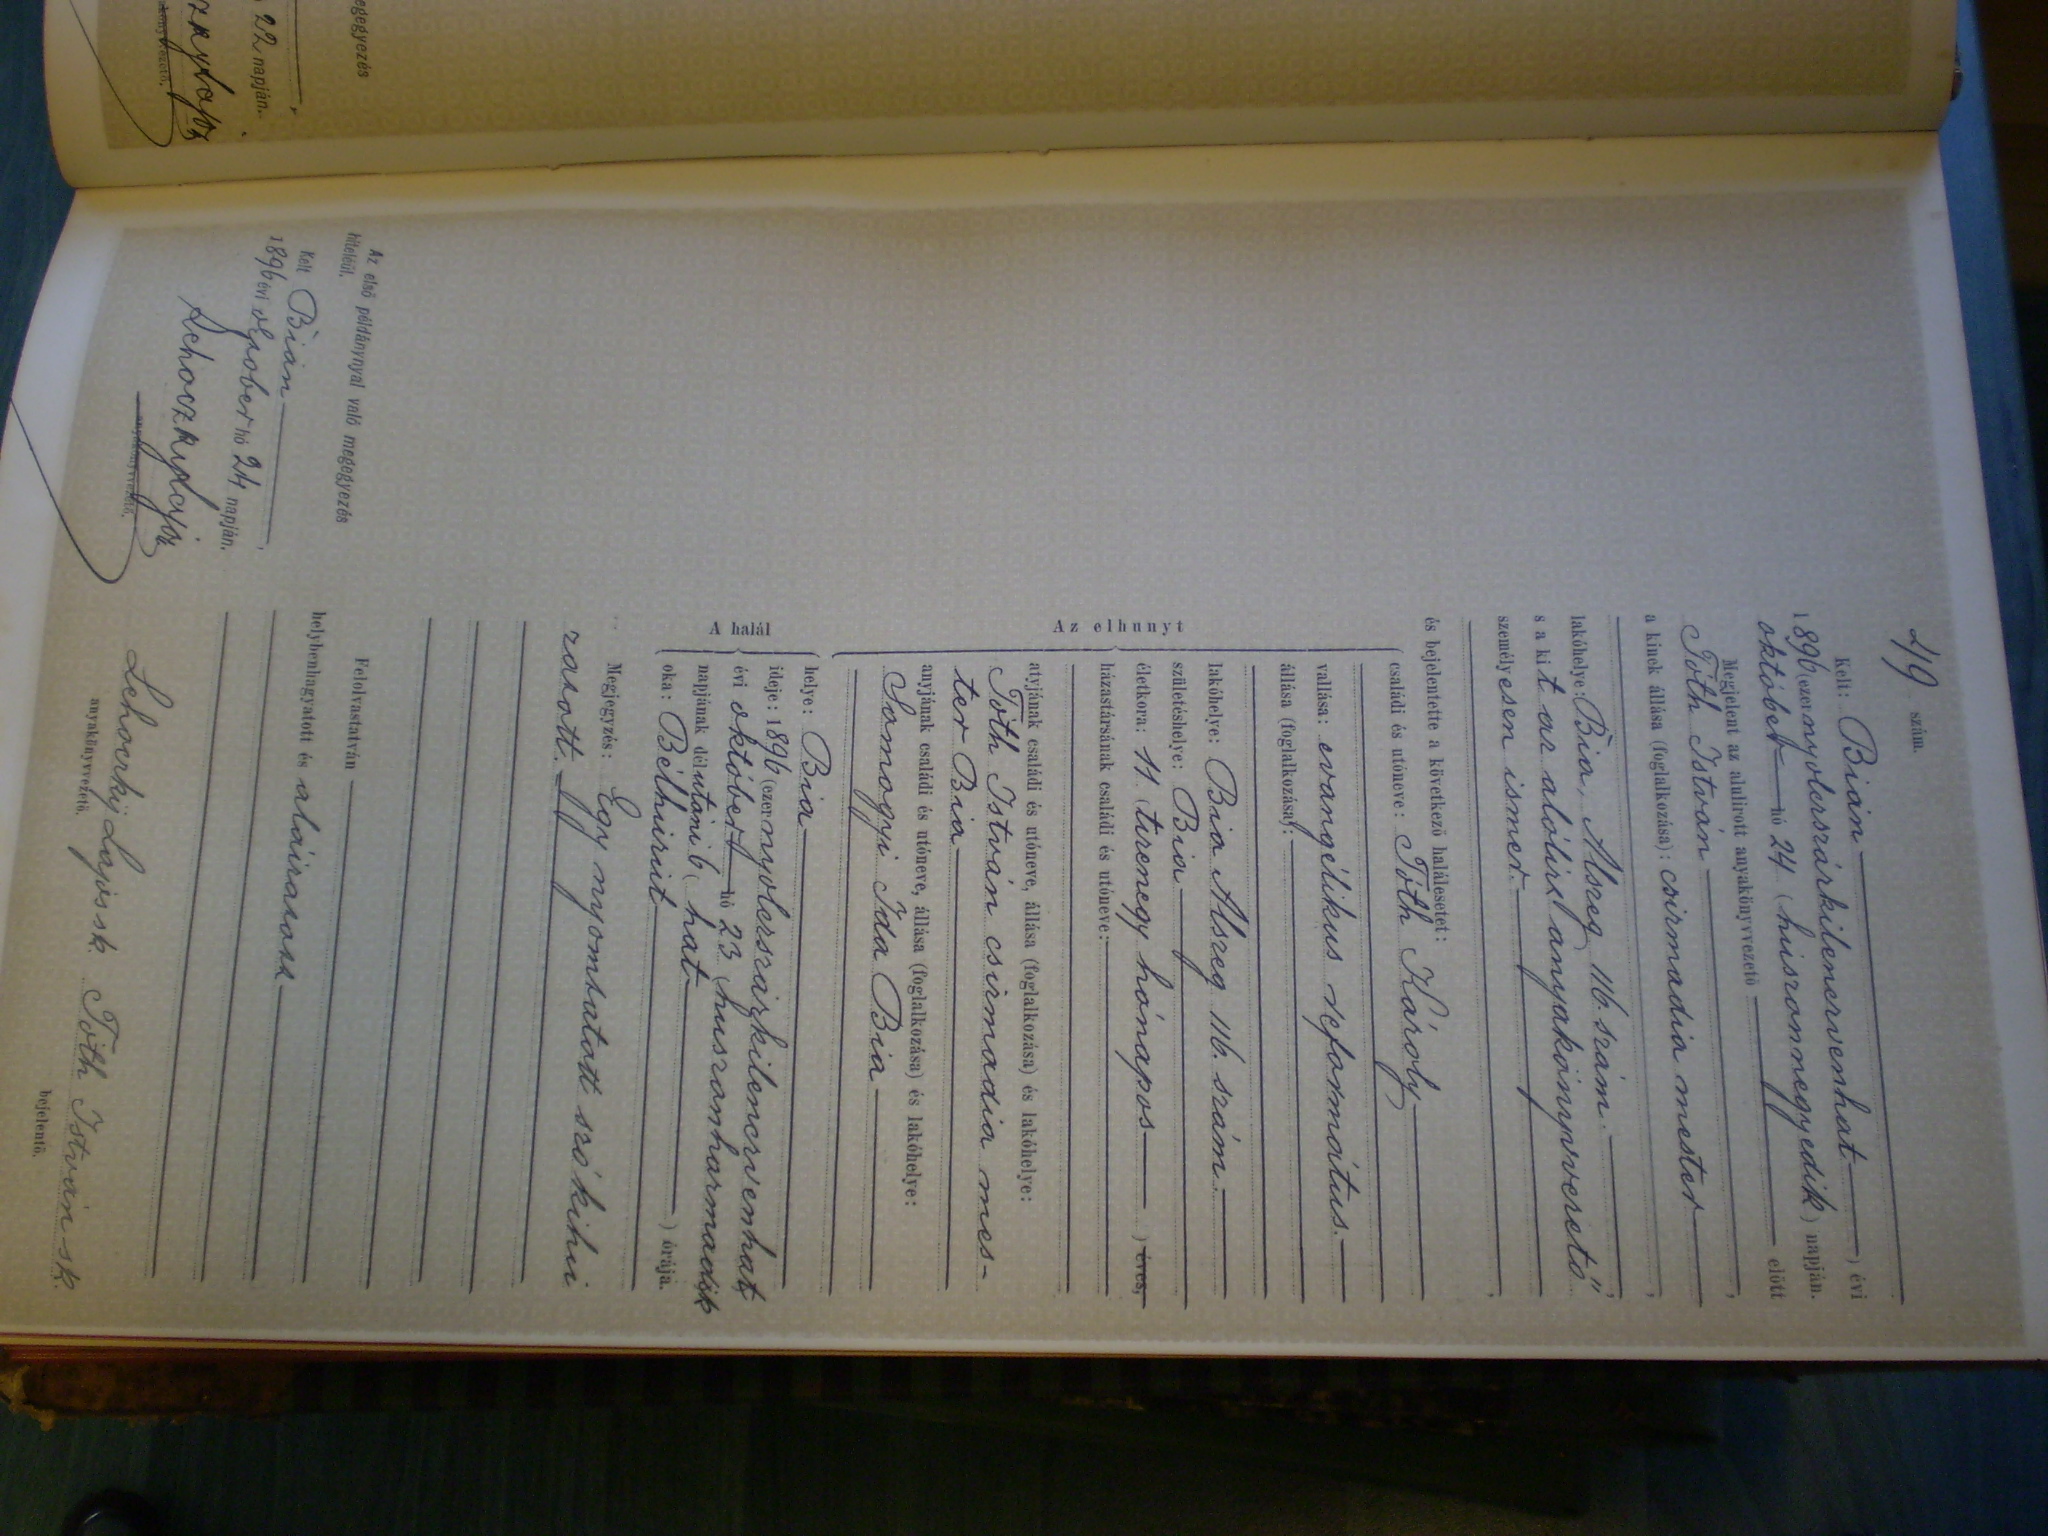 egegyezés
22 napján.
219 szám.
Kelt: Bián
1896 (ezer nyolcszázkilencvenhat) évi
október hó 24 (huszonnegyedik) napján.
Megjelent az alulirott anyakönyvvezető előtt
Tóth István,
a kinek állása (foglalkozása): csizmadia mester,
lakóhelye: Bia, Alszeg 116. szám.,
s a kit az alólirt anyakönyvvezető
személyesen ismer.
és bejelentette a következő halálesetet:
Az elhunyt
családi és utóneve: Tóth Károly
vallása: evangélikus református.
állása (foglalkozása):
lakóhelye: Bia Alszeg 116. szám.
születéshelye: Bia
életkora: 11. (tizenegy hónapos) éves,
házastársának családi és utóneve:
atyjának családi és utóneve, állása (foglalkozása) és lakóhelye:
Tóth István csizmadia mes-
ter Bia
anyjának családi és utóneve, állása (foglalkozása) és lakóhelye:
Somogyi Ida Bia
A halál
helye: Bia
ideje: 1896 (ezer nyolcszázkilencvenhat)
évi október hó 23 (huszonharmadik
napjának délutáni 6 (hat) órája.
oka: Bélhurut
Megjegyzés: Egy nyomtatott szó kihu
zatott.
Felolvastatván
helybenhagyatott és aláiratott
Schoczky Lajos sk. Tóth István sk.
anyakönyvvezető. bejelentő.
Az első példánynyal való megegyezés
hiteléül.
Kelt Bián,
1896 évi október hó 24 napján.
Schoczky Lajos
anyakönyvvezető.